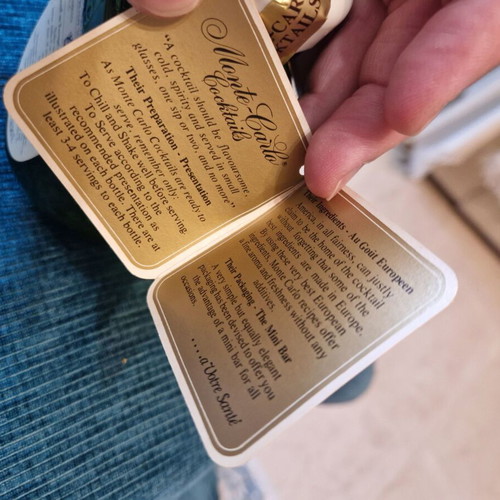 Monte Carlo
Cocktails
"A cocktail should be flavoursome,
cold, spirity and served in small
glasses, one sip or two, and no more"
Their Preparation - Presentation
As Monte Carlo Cocktails are ready to
serve, remember only:
To Chill and Shake well before serving.
To Serve according to the
recommended presentation as
illustrated on each bottle. There are at
least 3-4 servings to each bottle.
Ingredients - Au Goût Européen
America, in all fairness, can justly
claim to be the home of the cocktail
without forgetting that some of the
best ingredients are made in Europe.
By using these very best European
ingredients, Monte Carlo recipes offer
flavour and freshness without any
additives.
Their Packaging - The Mini Bar
A very simple, but equally elegant
packaging has been devised to offer you
the advantage of a mini bar for all
occasions.
. . . . a Votre Santé!
CAR
KTAILS